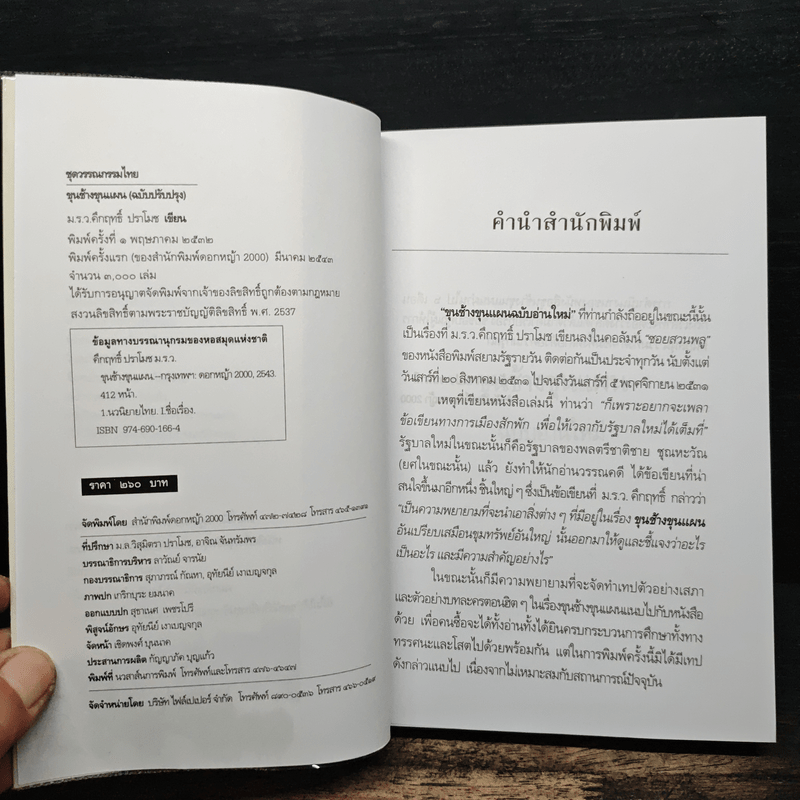 ชุดวรรณกรรมไทย
ขุนช้างขุนแผน (ฉบับปรับปรุง)
ม.ร.ว.คึกฤทธิ์ ปราโมช เขียน
พิมพ์ครั้งที่ ๑ พฤษภาคม ๒๕๓๒
พิมพ์ครั้งแรก (ของสำนักพิมพ์ดอกหญ้า 2000) มีนาคม ๒๕๔๓
จำนวน ๓,๐๐๐ เล่ม
ได้รับการอนุญาตจัดพิมพ์จากเจ้าของลิขสิทธิ์ถูกต้องตามกฎหมาย
สงวนลิขสิทธิ์ตามพระราชบัญญัติลิขสิทธิ์ พ.ศ. 2537
ข้อมูลทางบรรณานุกรมของหอสมุดแห่งชาติ
คึกฤทธิ์ ปราโมช ม.ร.ว.
ขุนช้างขุนแผน.--กรุงเทพฯ: ดอกหญ้า 2000, 2543.
412 หน้า.
1.นวนิยายไทย. I.ชื่อเรื่อง.
ISBN 974-690-166-4
ราคา ๒๖๐ บาท
จัดพิมพ์โดย สำนักพิมพ์ดอกหญ้า 2000 โทรศัพท์ ๔๗๒-๗๔๒๘ โทรสาร
ที่ปรึกษา ม.ล.วิสุมิตรา ปราโมช, อาจิณ จันทรัมพร
บรรณาธิการบริหาร ลาวัณย์ จารนัย
กองบรรณาธิการ สุภาภรณ์ กัณหา, อุทัยนีย์ เงาเบญจกุล
ภาพปก เกริกบุระ ยมนาค
ออกแบบปก สุชาเนศ เพชรโปรี
พิสูจน์อักษร อุทัยนีย์ เงาเบญจกุล
จัดหน้า เชิดพงศ์ บุนนาค
ประสานการผลิต กัญญาภัค บุญแก้ว
พิมพ์ที่ นวสาส์นการพิมพ์ โทรศัพท์และโทรสาร ๔๗๖-๔๖๔๗
จัดจำหน่ายโดย บริษัท ไฟล์เปเปอร์ จำกัด โทรศัพท์ ๘๙๐-๐๕๓๖ โทรสาร
คำนำสำนักพิมพ์
"ขุนช้างขุนแผนฉบับอ่านใหม่" ที่ท่านกำลังถืออยู่ในขณะนี้นั้น
เป็นเรื่องที่ ม.ร.ว.คึกฤทธิ์ ปราโมช เขียนลงในคอลัมน์ "ซอยสวนพลู"
ของหนังสือพิมพ์สยามรัฐรายวัน ติดต่อกันเป็นประจำทุกวัน นับตั้งแต่
วันเสาร์ที่ ๒๐ สิงหาคม ๒๕๓๑ ไปจนถึงวันเสาร์ที่ ๕ พฤศจิกายน ๒๕๓๑
เหตุที่เขียนหนังสือเล่มนี้ ท่านว่า "ก็เพราะอยากจะเพลา
ข้อเขียนทางการเมืองสักพัก เพื่อให้เวลากับรัฐบาลใหม่ได้เต็มที่"
รัฐบาลใหม่ในขณะนั้นก็คือรัฐบาลของพลตรีชาติชาย ชุณหะวัณ
(ยศในขณะนั้น) แล้ว ยังทำให้นักอ่านวรรณคดี ได้ข้อเขียนที่น่า
สนใจขึ้นมาอีกหนึ่ง ชิ้นใหญ่ ๆ ซึ่งเป็นข้อเขียนที่ ม.ร.ว.คึกฤทธิ์ กล่าวว่า
"เป็นความพยายามที่จะนำเอาสิ่งต่าง ๆ ที่มีอยู่ในเรื่อง ขุนช้างขุนแผน
อันเปรียบเสมือนขุมทรัพย์อันใหญ่ นั้นออกมาให้ดูและชี้แจงว่าอะไร
เป็นอะไร และมีความสำคัญอย่างไร"
ในขณะนั้นก็มีความพยายามที่จะจัดทำเทปตัวอย่างเสภา
และตัวอย่างบทละครตอนฮิต ๆ ในเรื่องขุนช้างขุนแผนแนบไปกับหนังสือ
ด้วย เพื่อคนซื้อจะได้ทั้งอ่านทั้งได้ยินครบกระบวนการศึกษาทั้งทาง
ทรรศนะและโสตไปด้วยพร้อมกัน แต่ในการพิมพ์ครั้งนี้มิได้มีเทป
ดังกล่าวแนบไป เนื่องจากไม่เหมาะสมกับสถานการณ์ปัจจุบัน